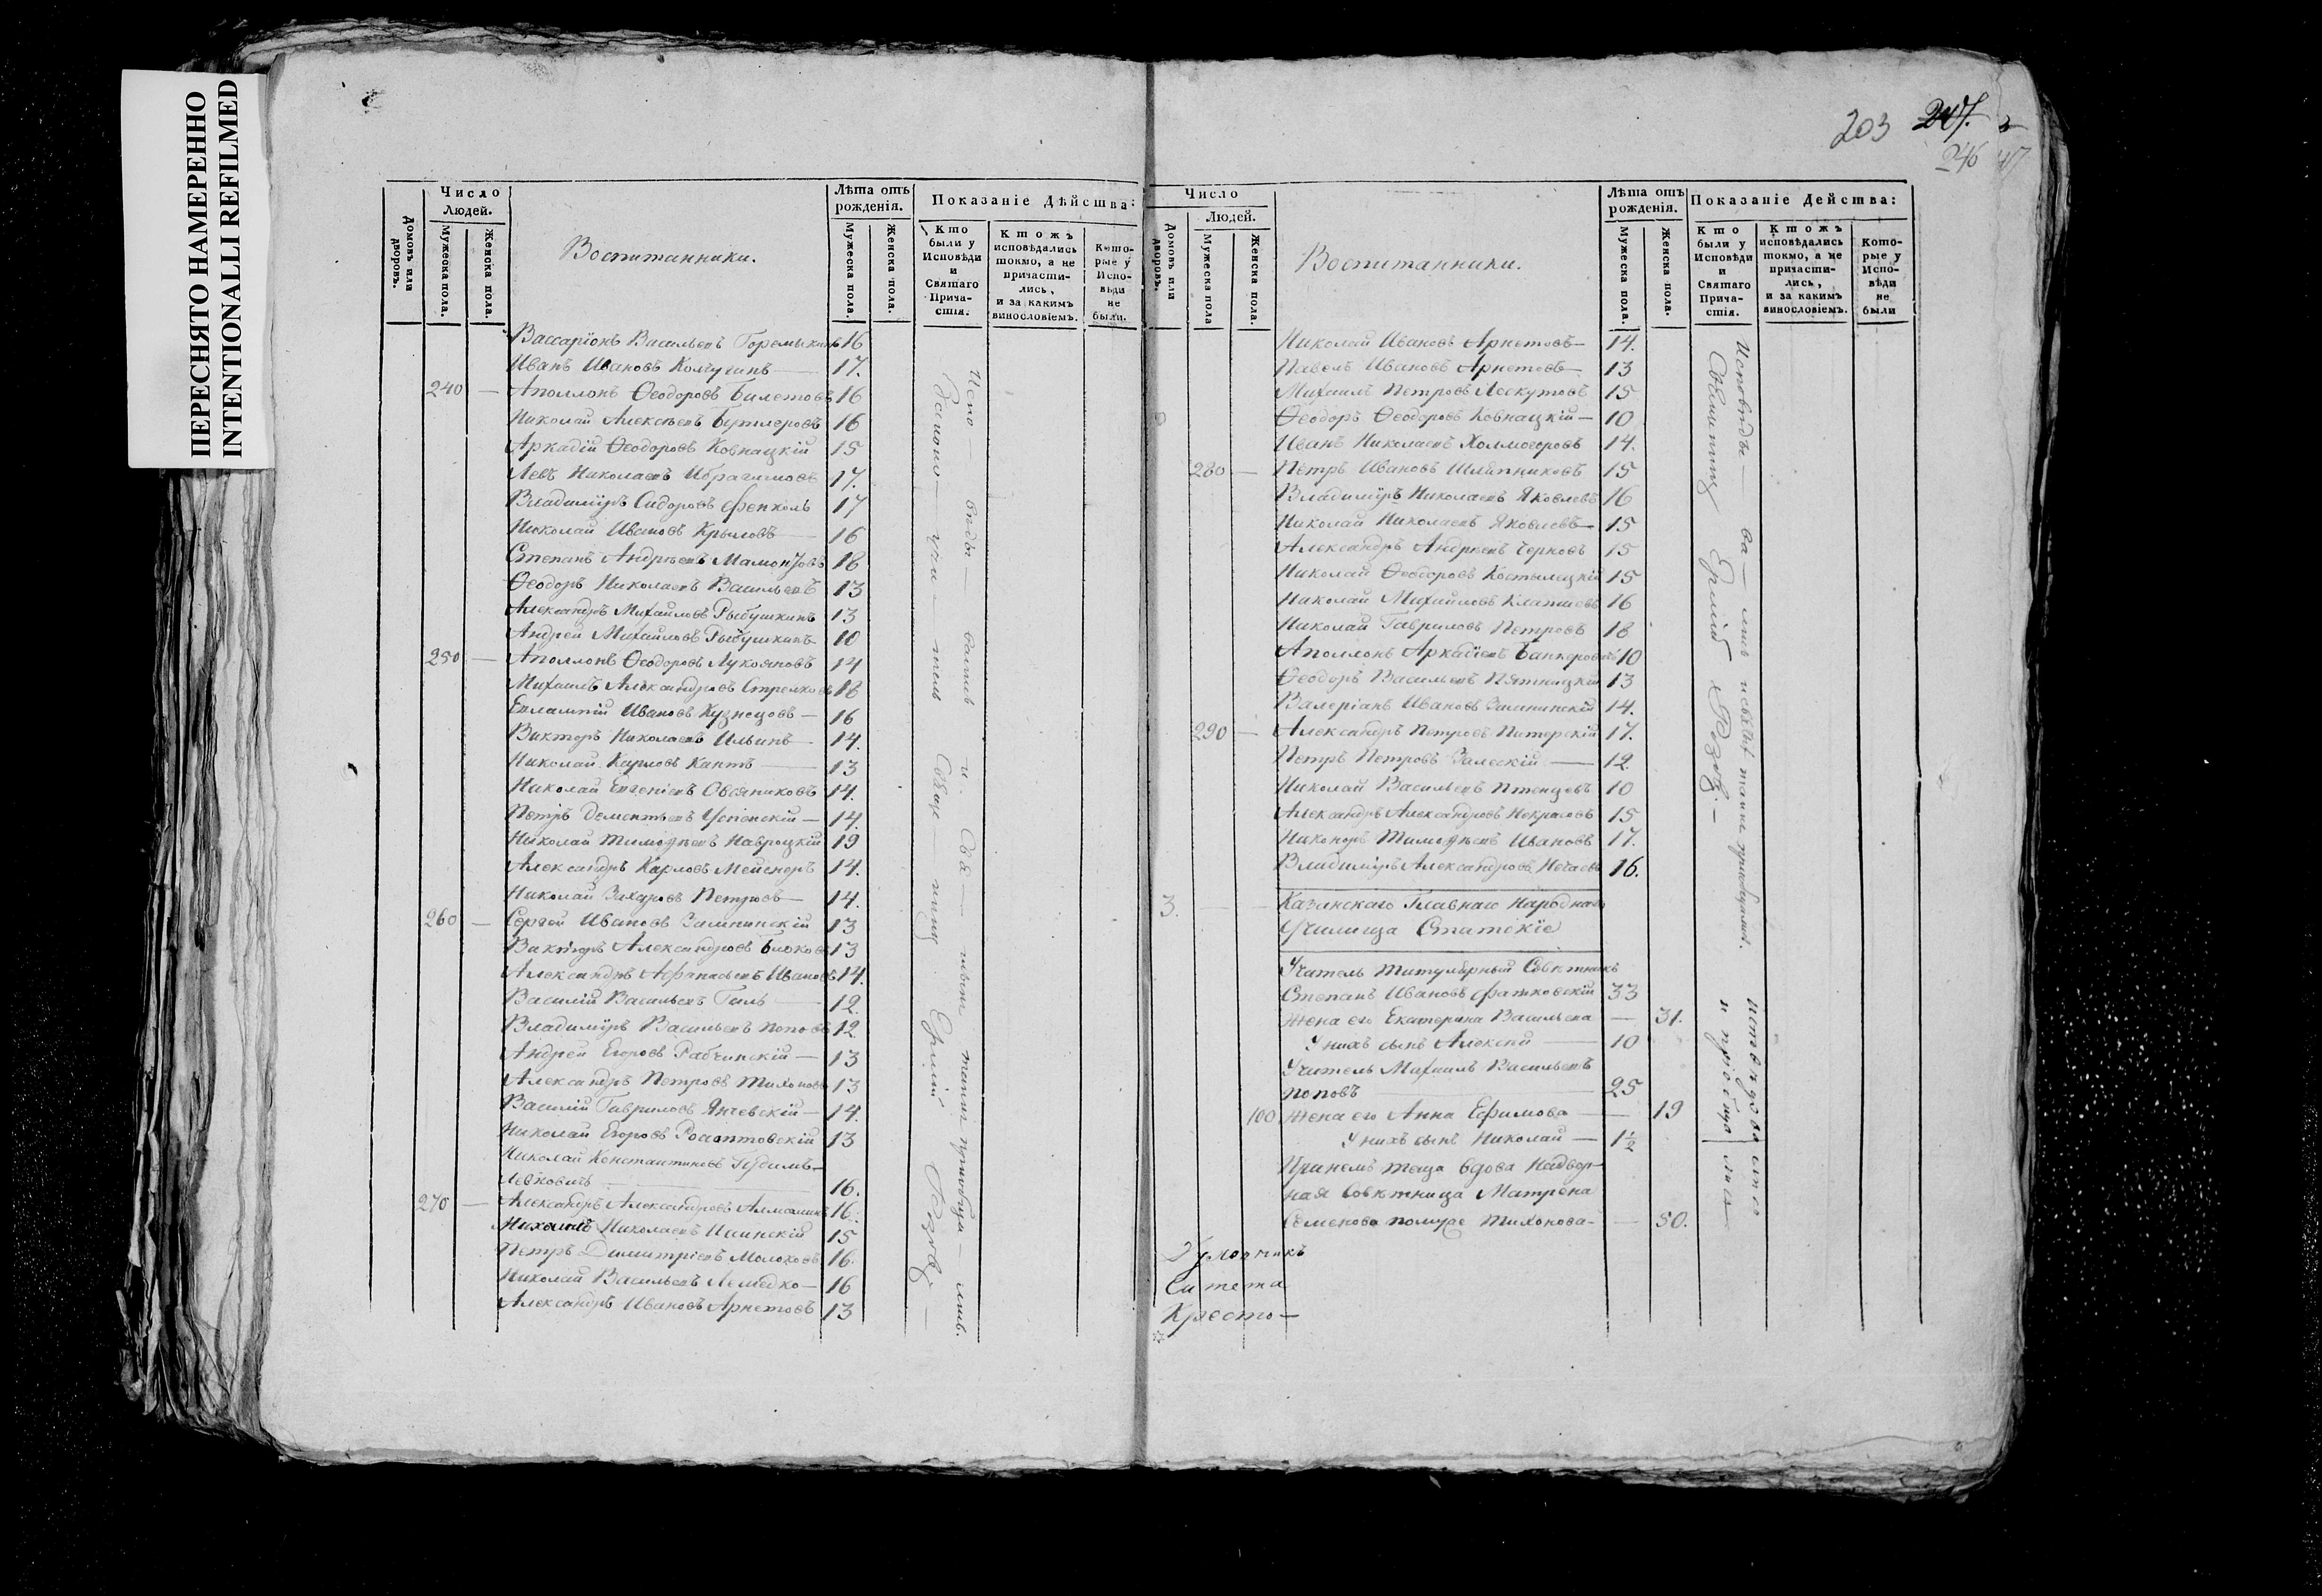 ПЕРЕСНЯТО НАМЕРЕННО
INTENTIONALLI REFILMED
203 247.
246
Домовъ или дворовъ.
Число
Людей.
Мужеска пола.
Женска пола.
Воспитанники.
Лѣта отъ
рожденія.
Мужеска пола.
Женска пола.
Показаніе Дѣйства:
Кто
были у
Исповѣди
и
Святаго
Прича-
стія.
Ктожъ
исповѣдались
токмо, а не
причасти-
лись,
и за какимъ
винословіемъ.
Кото-
рые у
Испо-
вѣди
не
были.
Вассаріонъ Васильевъ Горемыкинъ 16
Иванъ Ивановъ Колчугинъ — 17.
240 — Аполлонъ Ѳеодоровъ Билетовъ 16
Николай Алексѣевъ Бутлеровъ 16
Аркадій Ѳеодоровъ Ковнацкій 15
Левъ Николаевъ Ибрагимовъ 17.
Владиміръ Сидоровъ 17
Николай Ивановъ Крыловъ — 16
Степанъ Андреевъ Мамонтовъ 18
Ѳеодоръ Николаевъ Васильевъ 13
Александръ Михайловъ Рыбушкинъ 13
Андрей Михайловъ Рыбушкинъ 10
250 — Аполлонъ Ѳеодоровъ Лукояновъ 14
Михаилъ Александровъ 18
Евлампій Ивановъ Кузнецовъ — 16
Викторъ Николаевъ Ильинъ — 14.
Николай Карловъ Кантъ — 13
Николай Евгеніевъ Овсяниковъ 14.
Петръ Дементьевъ Успенскій — 14.
Николай Тимоѳеевъ Навроцкій 19
Александръ Карловъ Мейснеръ 14.
Николай Захаровъ Петровъ — 14.
260 — Сергѣй Ивановъ 13
Викторъ Александровъ 13
Александръ Афанасьевъ Ивановъ 14.
Василій Васильевъ Гиль — 12.
Владиміръ Васильевъ Поповъ 12
Андрей Егоровъ Рабчинскій — 13
Александръ Петровъ Тихоновъ 13
Василій Гавриловъ Янчевскій — 14.
Николай Егоровъ 13
Николай Константиновъ Гудимъ-
Левковичъ — 16.
270 — Александръ Александровъ 16.
Михаилъ Николаевъ 15
Петръ Димитріевъ Молоковъ 16.
Николай Васильевъ — 16
Александръ Ивановъ Арнетовъ 13
Домовъ или дворовъ.
Число
Людей.
Мужеска пола
Женска пола.
Воспитанники.
Лѣта отъ
рожденія.
Мужеска пола.
Женска пола.
Показаніе Действа:
Кто
были у
Исповѣди
и
Святаго
Прича-
стія.
Ктожъ
исповѣдались
токмо, а не
причасти-
лись,
и за какимъ
винословіемъ.
Кото-
рые у
Испо-
вѣди
не
были
Николай Ивановъ Арнетовъ — 14.
Павелъ Ивановъ Арнетовъ — 13
Михаилъ Петровъ Лоскутовъ 15
Ѳеодоръ Ѳеодоровъ Ковнацкій — 10
Иванъ Николаевъ Холмогоровъ 14.
280 — Петръ Ивановъ Шляпниковъ 15
Владиміръ Николаевъ Яковлевъ 16
Николай Николаевъ Яковлевъ — 15
Александръ Андреевъ Черновъ 15
Николай Ѳеодоровъ 15
Николай Михайловъ 16
Николай Гавриловъ Петровъ 18
Аполлонъ Аркадіевъ 10
Ѳеодоръ Васильевъ Пятницкій 13
Валеріанъ Ивановъ 14.
290 — Александръ Петровъ Питерскій 17.
Петръ Петровъ Залескій — 12.
Николай Васильевъ Птенцовъ 10
Александръ Александровъ Некрасовъ 15
Никоноръ Тимоѳеевъ Ивановъ 17.
Владиміръ Александровъ Нечаевъ 16.
3. Казанскаго Главнаго Народнаго
Училища Статскіе
Учитель Титулярный Совѣтникъ
Степанъ Ивановъ 33
жена его Екатерина Васильева — 31.
У нихъ сынъ Алексѣй — 10
Учитель Михаилъ Васильевъ
Поповъ 25
100 Жена его Анна Ефимова — 19
У нихъ сынъ Николай — 1½
При немъ теща вдова Надвор-
ная Совѣтница Матрена
Семенова Тихонова — 50.
Исповѣдывались
и пріобщались
Кресто-